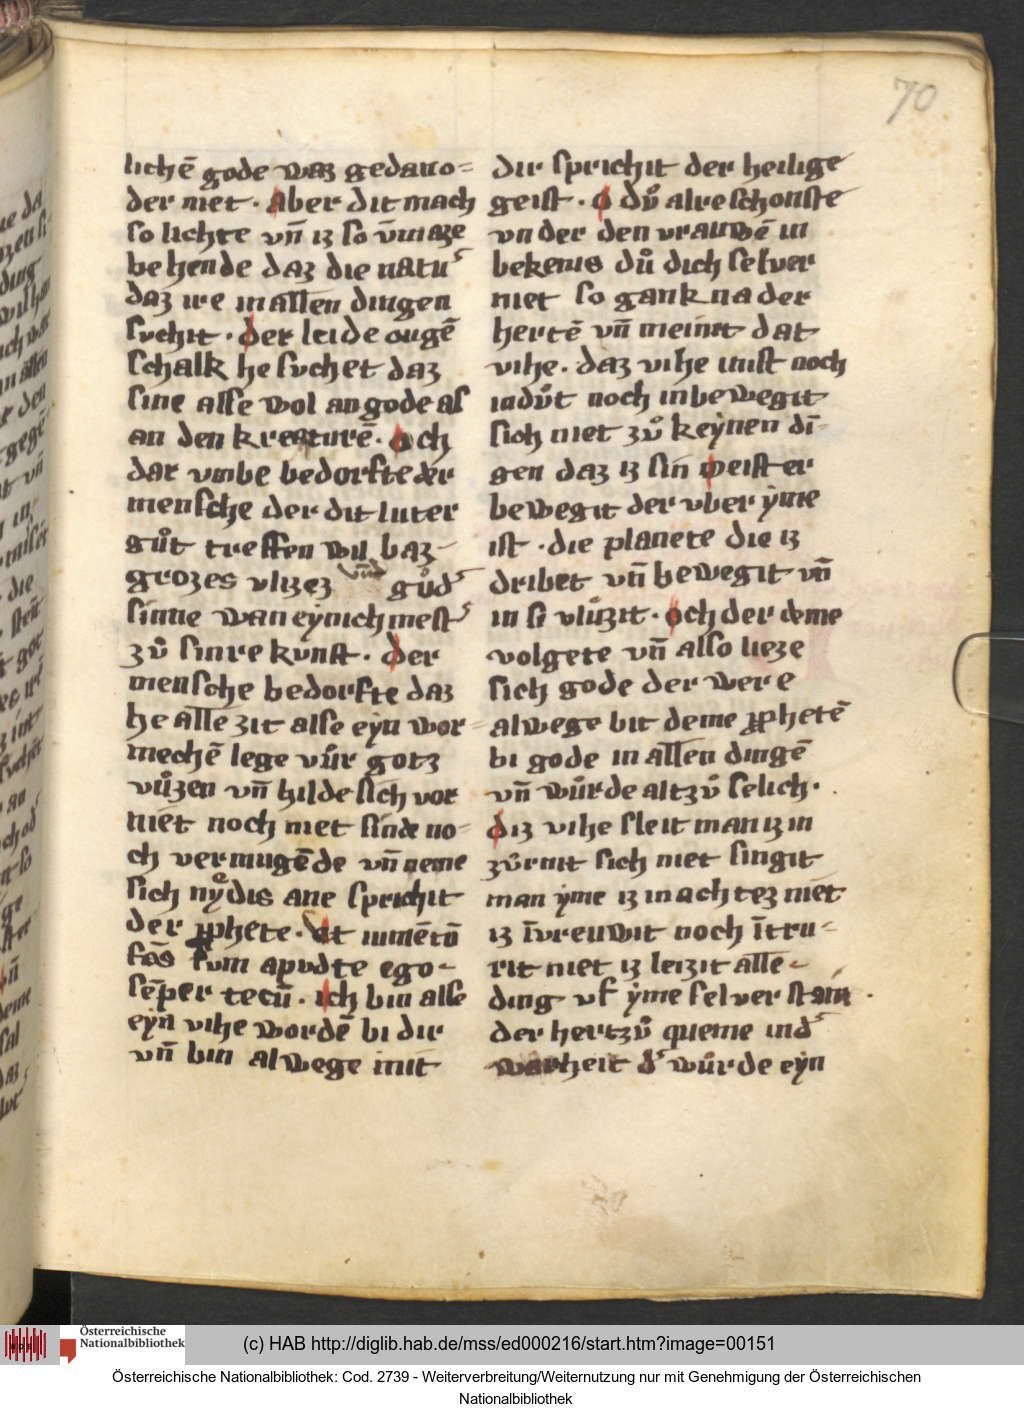 70
lichē gode waz gedauo-
der niet · Aber dit mach
so lichte vn̄ iz so v̄maze
behende daz die natuᷣ
daz ire in allen dingen
suchit · der leide ougē
schalk he suchet daz
sine alse wol an gode als
an den kreaturē · och
dar vmbe bedorfte der
mensche der dit luter
gůt treffen wil baz
grozes vlizez vnd gůdᷣ
sinne wan eynich mestᷣ
zů sinre kunst · der
mensche bedorfte daz
he alle zit alse eyn wor-
mechē lege vůr gotz
vůzen vn̄ hilde sich vor
niet noch niet sinde no-
ch vermugēde vn̄ neme
sich nydis ane sprichit
der ꝓphete · Vt iumētū
fās sum apud te ego-
sēper tecū · ich bin alse
eyn vihe wordē bi dir
vn̄ bin alwege mit
dir sprichit der heilige
geist · O dů alreschonste
vnder den vrauwē in
bekenis dů dich selver
niet so gank na der
hertē vn̄ meinit dat
vihe · daz vihe inist noch
indůt noch inbewegit
sich niet zů keynen dī-
gen daz iz sin meister
bewegit der vber yme
ist · die planete die iz
dribet vn̄ bewegit vn̄
in si vlůzit · och der deme
volgete vn̄ also lieze
sich gode der were
alwege bit deme ꝓphetē
bi gode in allen dingē
vn̄ wůrde altzů selich ·
diz vihe sleit man iz in
zůrnit sich niet singit
man yme iz in achtez niet
iz īvreuwit noch ītru-
rit niet iz leizit alle
ding vf yme selver stan ·
der hertzů queme indᷣ
warheit dᷣ wůrde eyn
(c) HAB http://diglib.hab.de/mss/ed000216/start.htm?image=00151
Österreichische
Nationalbibliothek
Österreichische Nationalbibliothek: Cod. 2739 - Weiterverbreitung/Weiternutzung nur mit Genehmigung der Österreichischen
Nationalbibliothek